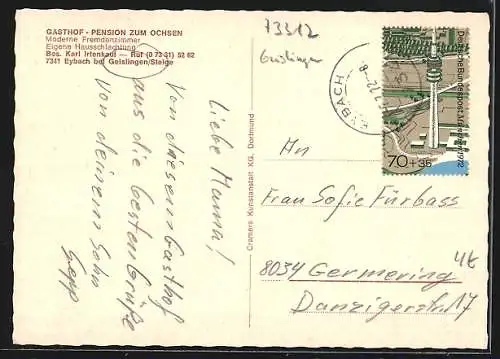 GASTHOF - PENSION ZUM OCHSEN
Moderne Fremdenzimmer
Eigene Hausschlachtung
Bes. Karl Irtenkauf — Ruf (0 73 31) 52 62
7341 Eybach bei Geislingen/Steige
Liebe Mama!
Von diesem Gasthof
aus die besten Grüße
von deinem Sohn
Sepp
Cramers Kunstanstalt KG, Dortmund
73312
Geislingen
EYBACH
Deutsche Bundespost München 1972
70+35
An
Frau Sofie Fürbass
8034 Germering
Danzigerstr. 17